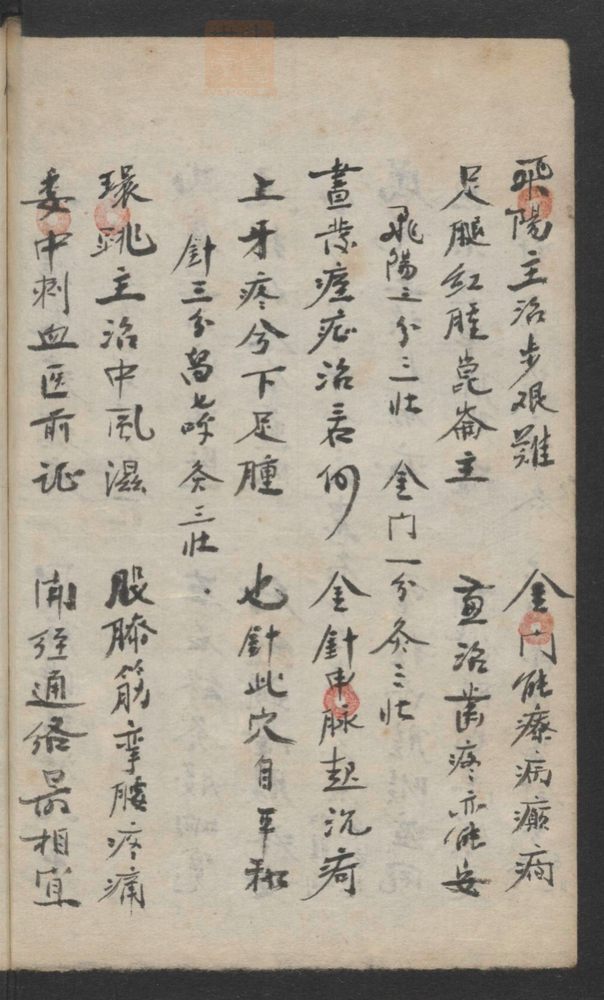 飛陽主治步艰難　金门能療病癲癇
足腿红腫崑崙主　兼治齒疼亦能安
飛陽三分三壮　金门一分灸三壮
晝發痓症治若何　金針申脉起沉疴
上牙疼兮下足腫　也針此穴自平和
針三分留七呼灸三壮
環跳主治中風濕　股膝筋挛腰疼痛
委中刺血医前证　開经通络最相宜